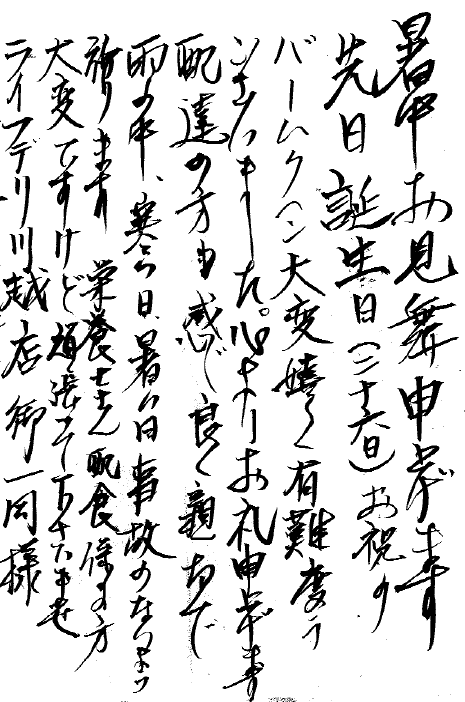 暑中お見舞申上げます
先日誕生日(二十六日)お祝の
バームクーヘン大変嬉しく有難度う
ございました。心よりお礼申上げます
配達の方も感じ良く親切で
雨の中、寒い日、暑い日事故のない様
祈ります 栄養士さん配食係の方
大変ですけど頑張って下さいませ
ライフデリ川越店御一同様